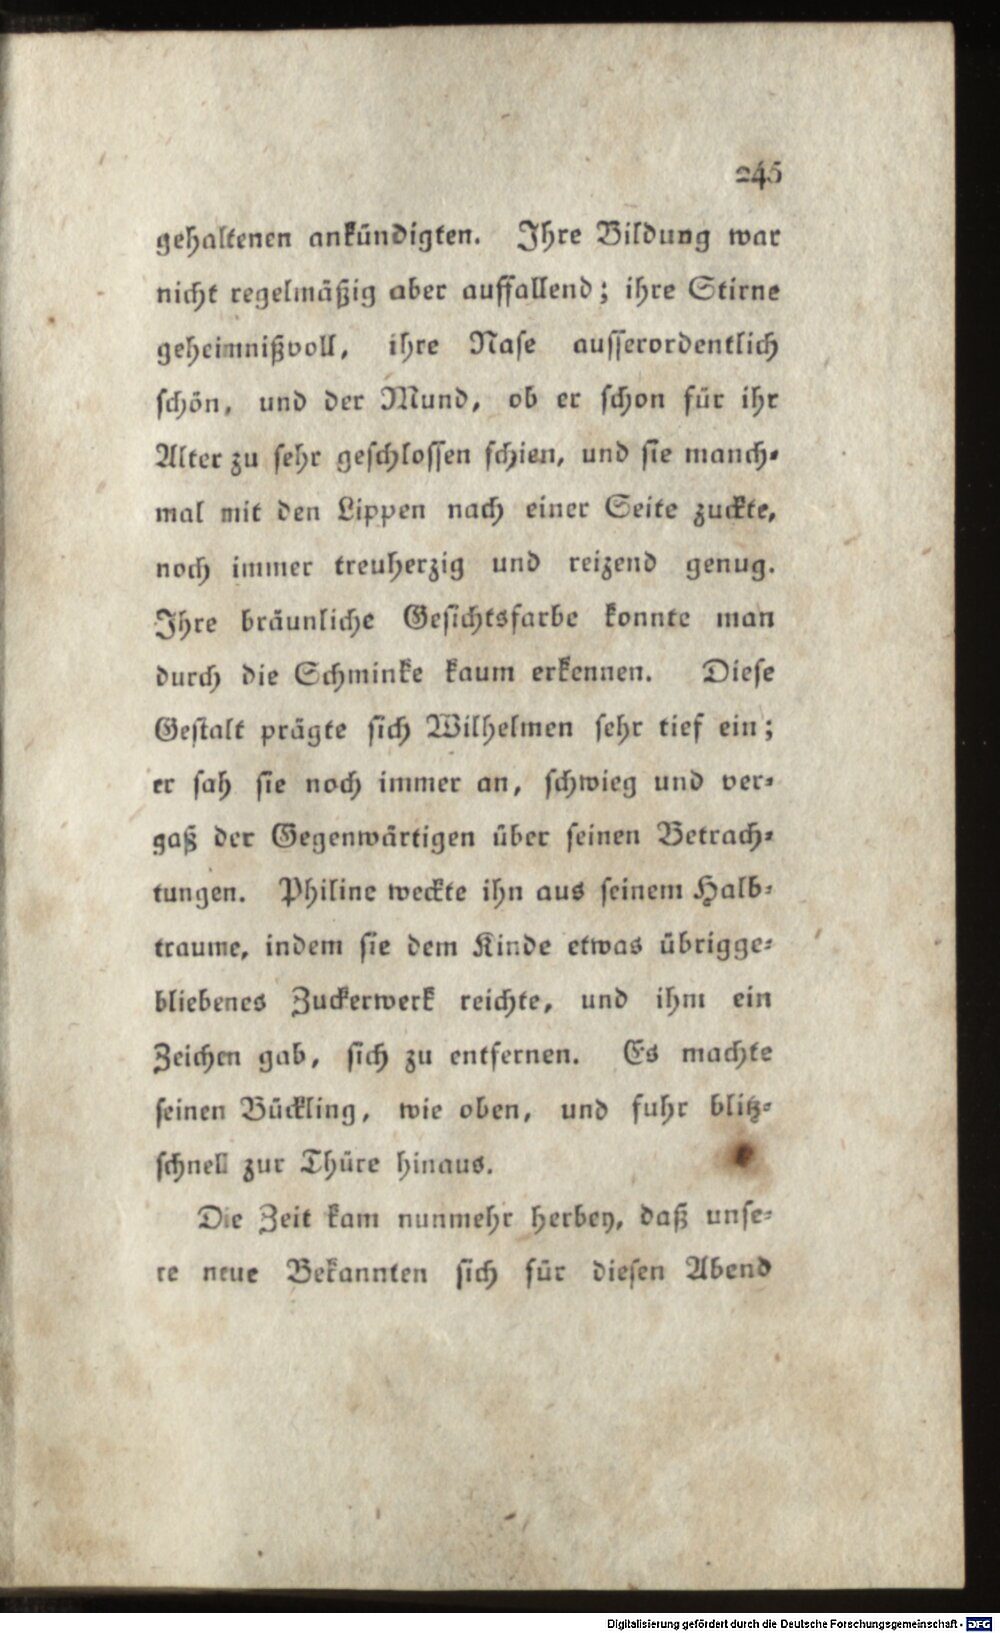 245
gehaltenen ankündigten. Ihre Bildung war
nicht regelmäßig aber auffallend; ihre Stirne
geheimnißvoll, ihre Nase ausserordentlich
schön, und der Mund, ob er schon für ihr
Alter zu sehr geschlossen schien, und sie manch-
mal mit den Lippen nach einer Seite zuckte,
noch immer treuherzig und reizend genug.
Ihre bräunliche Gesichtsfarbe konnte man
durch die Schminke kaum erkennen. Diese
Gestalt prägte sich Wilhelmen sehr tief ein;
er sah sie noch immer an, schwieg und ver-
gaß der Gegenwärtigen über seinen Betrach-
tungen. Philine weckte ihn aus seinem Halb-
traume, indem sie dem Kinde etwas übrigge-
bliebenes Zuckerwerk reichte, und ihm ein
Zeichen gab, sich zu entfernen. Es machte
seinen Bückling, wie oben, und fuhr blitz-
schnell zur Thüre hinaus.
Die Zeit kam nunmehr herbey, daß unse-
re neue Bekannten sich für diesen Abend
Digitalisierung gefördert durch die Deutsche Forschungsgemeinschaft - DFG